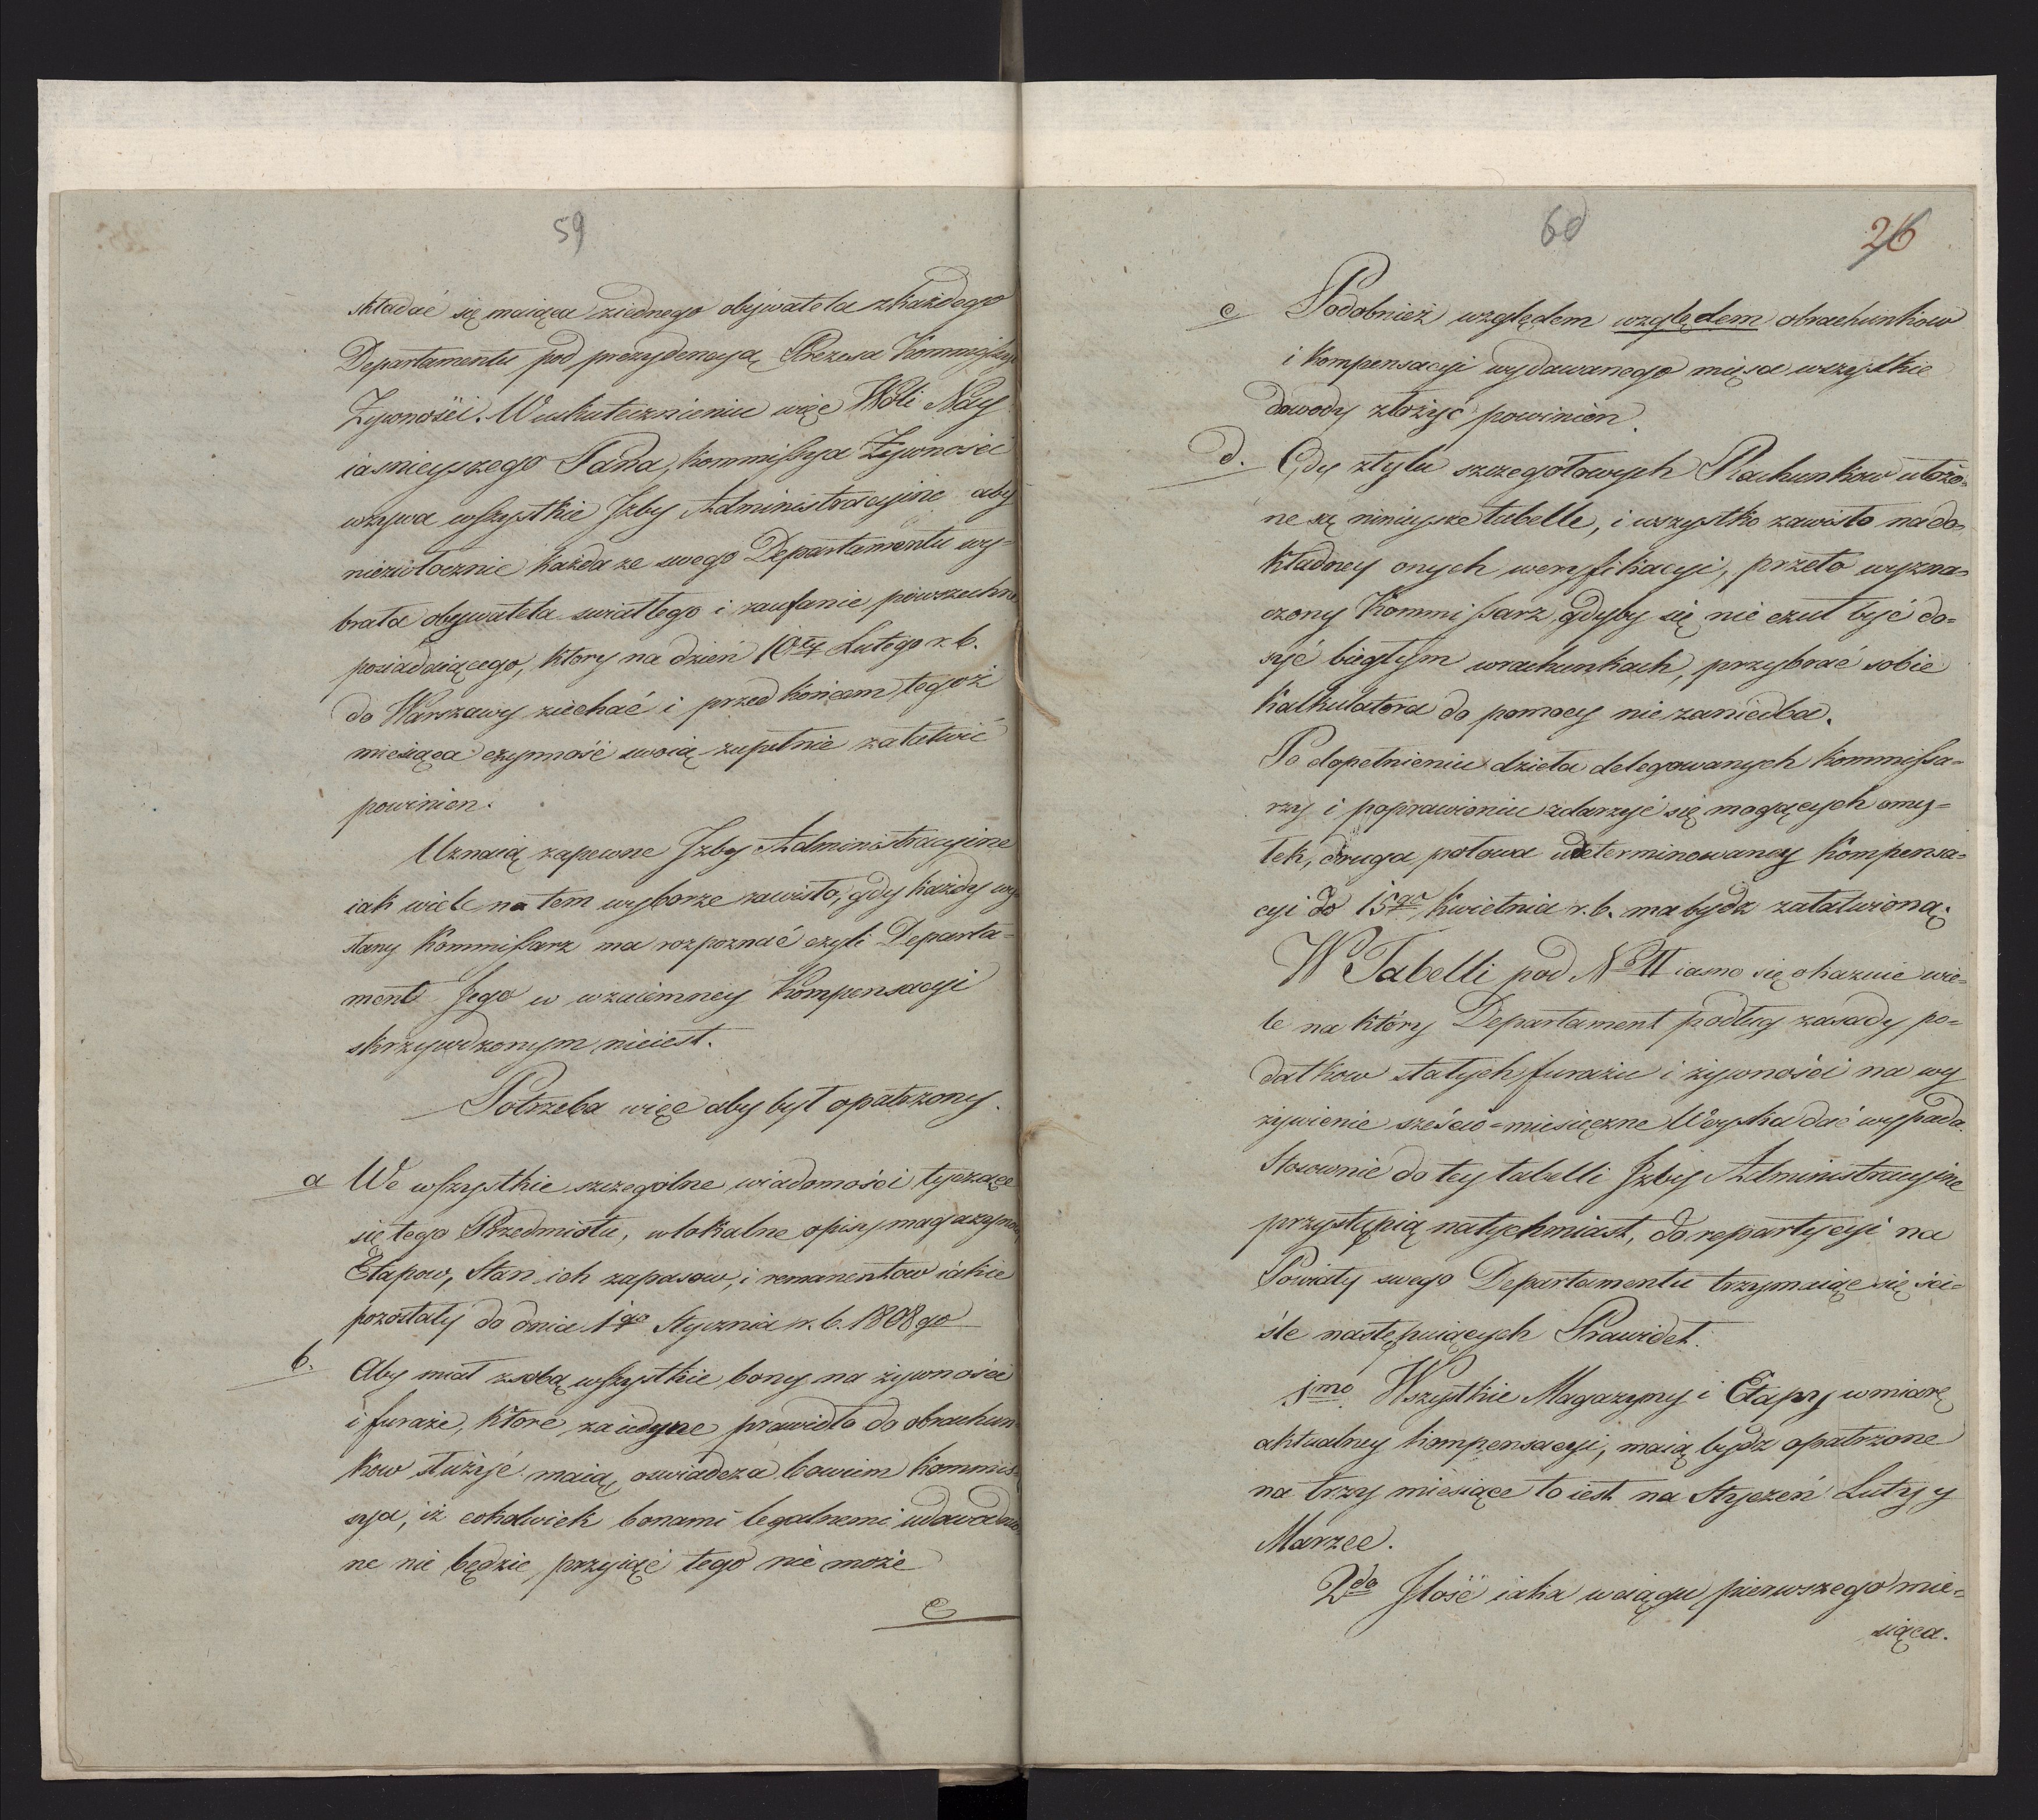 59
składać się maiąca ziednego obywatela zkażdego
Departamentu pod prezydencyą Prezesa Kommissyi
Żywnośći. W uskutecznieniu więc Woli Nay
iasnieyszego Pana, kommissya Żywności
wzywa wszystkie Jzby Administracyine aby
niezwłocznie każda ze swego Departamentu wy=
brała obywatela swiatłego i zaufanie powszechne
posiadaiącego, ktory na dzień 10ty Lutego r. b.
do Warszawy ziechać i przed końcem tegoż
miesiąca czynność swoią zupełnie załatwić
powinien.
Uznaią zapewne Jzby Administracyine
iak wiele na tem wyborze zawisło, gdy każdy wy=
słany Kommissarz ma rozpoznać czyli Departa=
ment Jego w wzaiemney Kompensacyi
skrzywdzonym nieiest.
Potrzeba więc aby był opatrzony.
a We wszystkie szczegolne wiadomości tyczące
się tego Przedmiotu, w lokalne opisy magazynow
Etapow, Stan ich zapasow, i remanentow iakie
pozostały do dnia 1go Stycznia r. b. 1808 go
b. Aby miał zsobą wszystkie bony na żywnosći
i furaże, które za iedyne prawidło do obrachun
kow służyć maią, oswiadcza bowiem Kommis=
sya, iż cokolwiek bonami legalnemi udowodnio
ne nie będzie przyiąć tego nie może
c
60
26
c Podobnież względem względem obrachunkow
i kompensacyi wydawanego mięsa wszystkie
dowody złożyć powinien.
d. Gdy ztylu szczegołowych Rachunkow ułożo=
ne są ninieysze tabelle, i wszystko zawisło na do=
kładney onych weryfikacyi, przeto wyzna=
czony Kommissarz, gdyby się nie czuł być do=
syć biegłym wrachunkach, przybrać sobie
Kalkulatora do pomocy nie zaniedba.
Po dopełnieniu dzieła delegowanych Kommissa=
rzy i poprawieniu zdarzyć się mogących omy=
łek, druga połowa udeterminowaney Kompensa=
cyi do 15go Kwietnia r. b. ma bydz załatwioną.
W Tabelli pod No II iasno się okazuie wie=
le na który Departament podług zasady po=
datkow stałych furażu i żywności na wy
żywienie sześcio=miesięczne Woyska dać wypada.
Stosownie do tey tabelli Jzby Administracyine
przystąpią natychmiast, do repartycyi na
Powiaty swego Departamentu trzymaiąc się ści=
śle następuiących Prawideł.
1mo Wszystkie Magazyny i Etapy w miarę
aktualney kompensacyi, maią bydz opatrzone
na trzy miesiące to iest na Styczeń Luty y
Marzec.
2do Jlość iaka w ciągu pierwszego mie=
siąca.